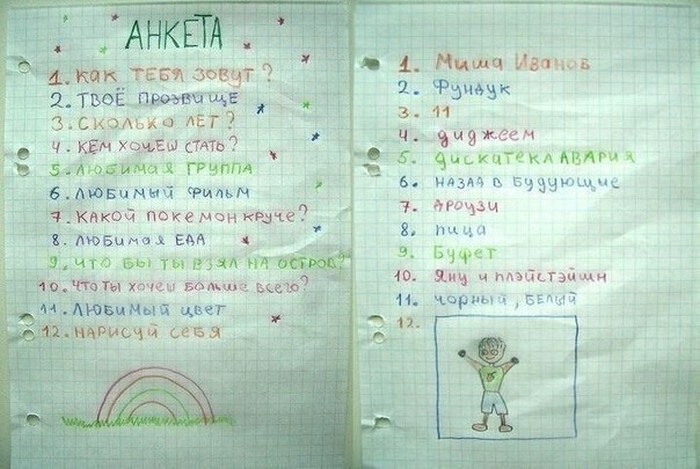 АНКЕТА
1. КАК ТЕБЯ ЗОВУТ?
2. ТВОЁ ПРОЗВИЩЕ
3. СКОЛЬКО ЛЕТ?
4. КЕМ ХОЧЕШ СТАТЬ?
5. ЛЮБИМАЯ ГРУППА
6. ЛЮБИМЫЙ ФИЛЬМ
7. КАКОЙ ПОКЕМОН КРУЧЕ?
8. ЛЮБИМАЯ ЕДА
9. ЧТО БЫ ТЫ ВЗЯЛ НА ОСТРОВ?
10. ЧТО ТЫ ХОЧЕШ БОЛЬШЕ ВСЕГО?
11. ЛЮБИМЫЙ ЦВЕТ
12. НАРИСУЙ СЕБЯ
1. Миша Иванов
2. Фундук
3. 11
4. диджеем
5. дискатека АВАРИЯ
6. НАЗАД В БУДУЮЩИЕ
7. ДРОУЗИ
8. пица
9. Буфет
10. Яну и плэйстэйшн
11. чорный, БЕЛЫЙ
12.